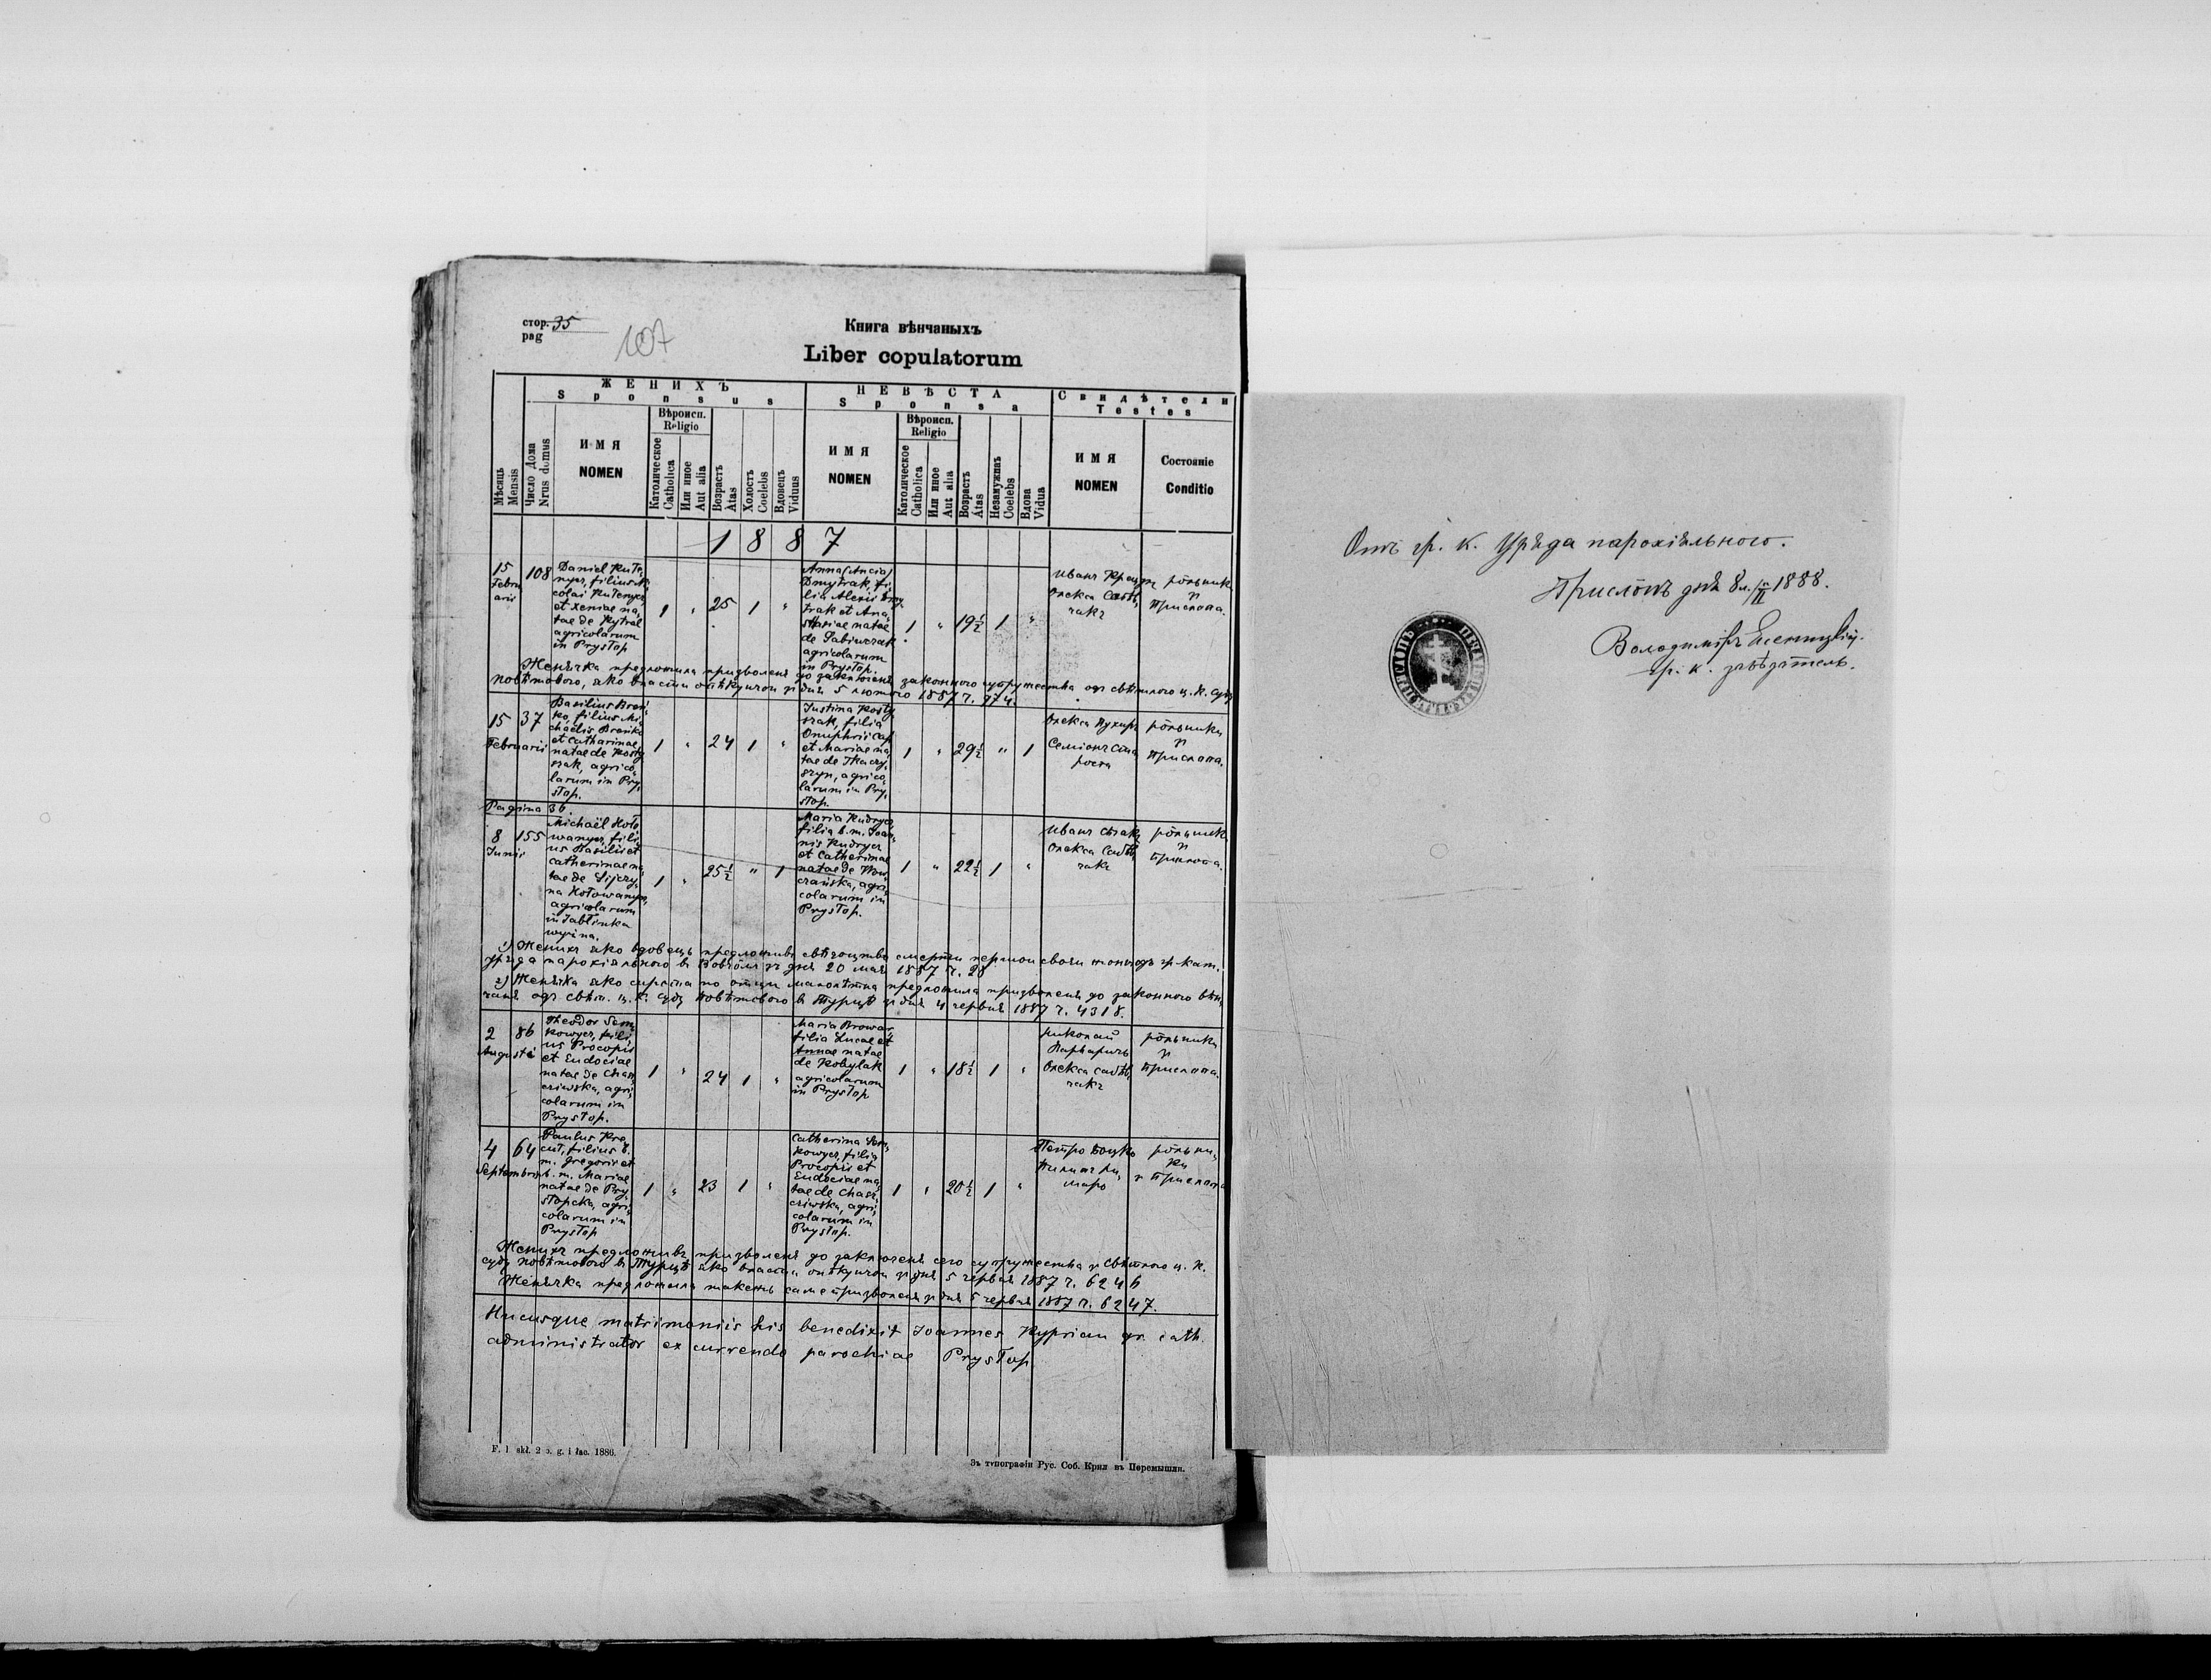 стор. 35
pag
107
Книга вѣнчаныхъ
Liber copulatorum
ЖЕНИХЪ
Sponsus
НЕВѢСТА
Sponsa
Свидѣтели
Testes
Мѣсяць
Mensis
Число Дома
Nrus domus
ИМЯ
NOMEN
Вѣроисп.
Religio
Католическое
Catholica
Или иное
Aut alia
Возрастъ
Atas
Холостъ
Coelebs
Вдовецъ
Viduus
ИМЯ
NOMEN
Вѣроисп.
Religio
Католическое
Catholica
Или иное
Aut alia
Возрастъ
Atas
Незамужнаъ
Coelebs
Вдова
Vidua
ИМЯ
NOMEN
Состояніе
Conditio
1887
15
Febru
arii
108
Daniel Kute,
nycz, filius Ni,
colai Kutenycz,
et Xeniae na,
tae de Kytral
agricolarum
in Prysłop
1 " 25 1 "
Anna (Ancia)
Dmytrak, fi,
lia Alexii Dmy,
trak et Ana,
stasiae natae
de Sabiwczak
agricolarum
in Prysłop.
1 " 19½ 1 "
Иванъ
Олекса
рôльники
зъ
Прислопа.
Женячка предложила призволенє до заключеня законного супружества одъ свѣтлого ц. к. суду
повѣтового, яко власти опѣкунчои зъ дня 5 лютого 1887 ч. 974.
15
Februarii
37
Basilius Breń,
ko, filius Mi,
chaelis Breńko
et Catharinae,
natae de Kosty
szak, agrico,
larum in Pry,
słop.
1 " 24 1 "
Justina Kosty
szak, filia
Onuphrii Cap
et Mariae na,
tae de Tkaczy,
szyn, agrico,
larum in Pry,
słop.
1 " 29½ " 1
Олекса
Семіонъ
роста
рôльники
зъ
Прислопа.
Pagina 36.
8
Junii
155
Michaël Hoło
wanycz, fili,
us Basilii et
Catherinae na,
tae de
na Hołowanycz,
agricolarum
in Jabłinka
wyżna.
1 " 25½ " 1
Maria Kudrycz
filia b. m. Joan,
nis Kudrycz
et Catherinae
natae de
agri,
colarum in
Prysłop.
1 " 22½ 1 "
Иванъ
Олекса
рôльники
зъ
Прислопа.
1) Женихъ яко вдовець предложивъ свѣдоцтво смерти першои своєи жоны одъ гр. кат.
уряда парохіяльного в зъ дня 20 мая 1887 ч. 20
2) Женячка яко сирота по отци малолѣтна предложила призволеня до законного вѣн,
чаня одъ свѣт. ц. к. суду повѣтового в Турцѣ зъ дня 4 червня 1887 ч. 4318.
2
Augusti
86
Theodor Sen,
kowycz, fili,
us Procopii
et Eudociae
natae de Chasz
cziwska, agri,
colarum in
Prysłop.
1 " 24 1 "
Maria Browar,
filia Lucae et
Annae natae
de Kobylak
agricolarum
in Prysłop
1 " 18½ 1 "
Николай
Олекса
рôльники
зъ
Прислопа.
4
Septembris
64
Paulus Kre
cut, filius b.
m. Gregorii et
b. m. Mariae
natae de Pry,
słopcka, agri,
colarum in
Prysłop
1 " 23 1 "
Catherina Sen,
kowycz, filia
Procopii et
Eudociae na,
tae de Chasz,
cziwska, agri,
colarum in
Prysłop.
1 " 20½ 1 "
Петро Боцко
рôльни,
ки
зъ Прислопа
Женихъ предложивъ призволеня до заключеня сего супружества зъ свѣтлого ц. к.
суду повѣтового в Турцѣ яко власти опѣкунчои зъ дня 5 червня 1887 ч. 6246
Женячка предложила такожь саме призволеня зъ дня 5 червня 1887 ч. 6247.
Hucusque matrimoniis his benedixit Joannes Kyprian gr. cath.
administrator ex currendo parochiae Prysłop
F. 1 skł. 2 b. g. i łac. 1886.
Зъ типографіи Рус. Соб. Крил. въ Перемышли.
Отъ гр. к. Уряда парохіяльного.
Прислôпъ днѧ 8 л. /II 1888.
Володимиръ
гр. к. завѣдатель.